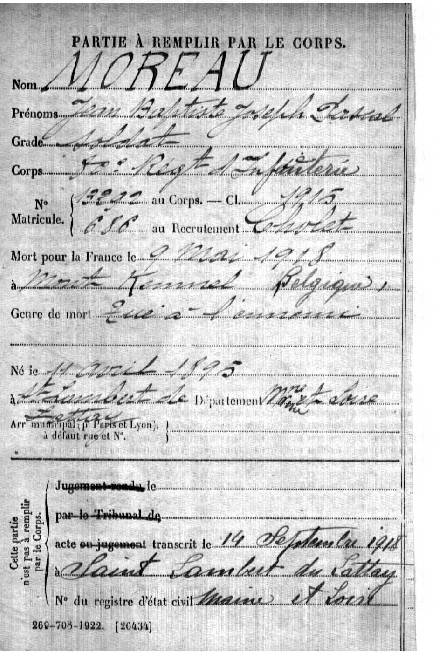 PARTIE À REMPLIR PAR LE CORPS.
Nom MOREAU
Prénoms Jean Baptiste Joseph Pascal
Grade soldat
Corps Régt d'Infanterie
N° Matricule. { au Corps. — Cl. 1915
686 au Recrutement Cholet
Mort pour la France le 9 Mai 1918
à Mont Kemmel Belgique
Genre de mort Tué à l'ennemi
Né le 11 avril 1895
à St Lambert du Département Maine et Loire
Lattay
Arr municipal (p' Paris et Lyon),
à défaut rue et N°.
Cette partie
n'est pas à remplir
par le Corps.
Jugement rendu le
par le Tribunal de
acte ou jugement transcrit le 14 Septembre 1918
à Saint Lambert du Lattay
N° du registre d'état civil Maine et Loire
269-708-1922. [26434]